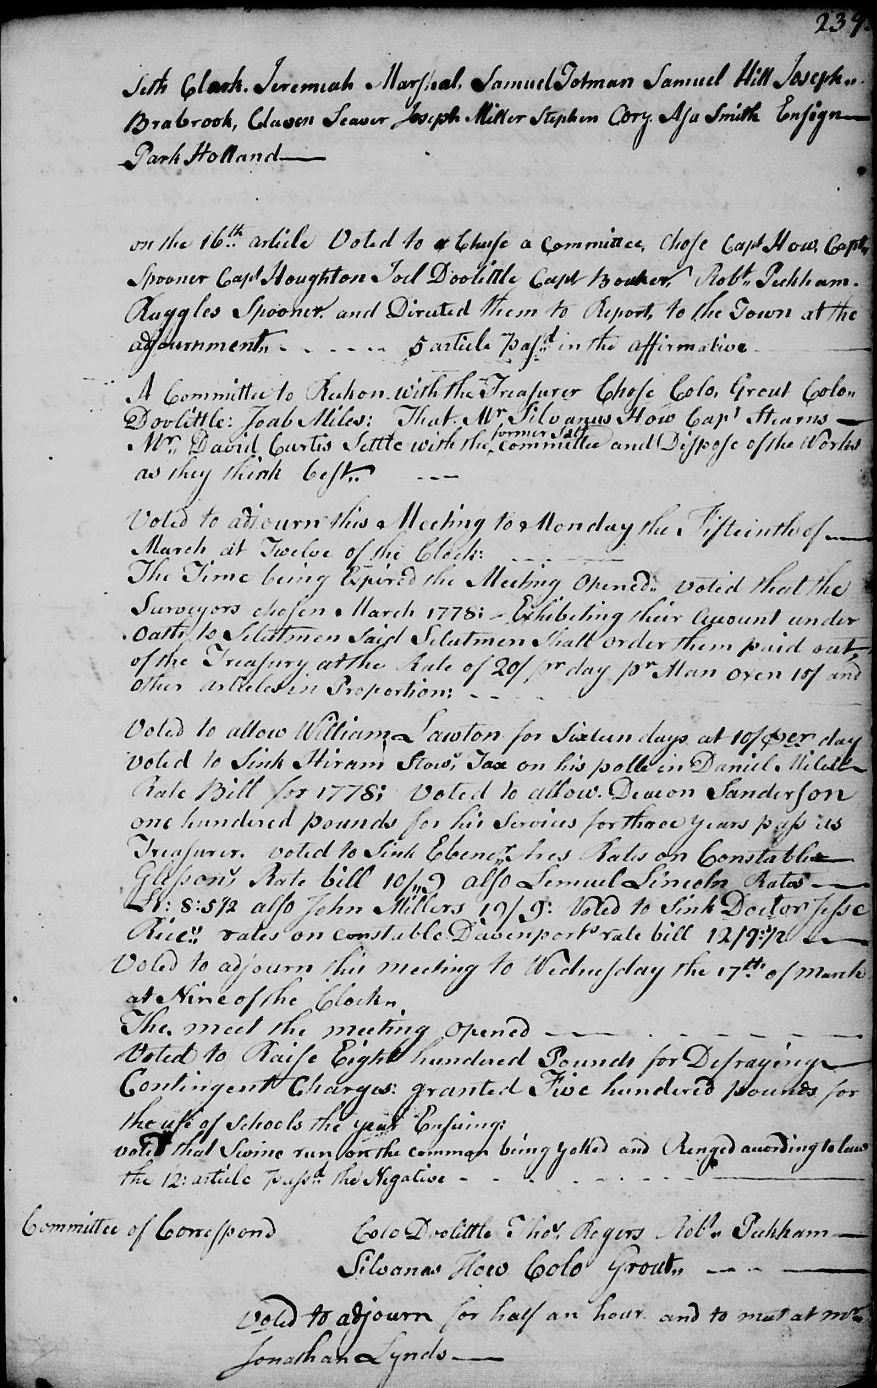 239
Seth Clark. Jeremiah Marshal, Samuel Totman Samuel Hill Joseph
Brabrook, Clawen Seaver Joseph Miller Stephen Cory. Asa Smith Ensign
Park Holland
on the 16th article Voted to Chuse a Committee, Chose Capt How, Capt
Spooner Capt Houghton Joel Doolittle Capt Bouker, Robt Peckham.
Ruggles Spooner. and Directed them to Report, to the Town at the
adjournment, 5 article Passd in the affirmative
A Committee to Reckon with the Treasurer Chose Colo, Grout Colo
Doolittle: Joab Miles: That Mr Silvanus How Capt Stearns
Mr David Curtis Settle with the former Salt Committee and Dispose of the Works
as they think best
Voted to adjourn this Meeting to Monday the Fifteenth of
March at Twelve of the Clock:
The Time being Expired the Meeting Opened. Voted that the
Surveyors chosen March 1778: Exhibiting their Account under
Oath to Selectmen Said Selectmen Shall order them paid out
of the Treasury at the Rate of 20/ pr day pr Man oxen 10/ and
other articles in Proportion:
Voted to allow William Lawton for Sixteen days at 10/ per day
Voted to Sink Hiram Stows, Tax on his polle in Daniel
Rate Bill for 1778; Voted to allow. Deacon Sanderson
one hundred pounds for his Services for three years pass as
Treasurer. voted to Sink Ebenr Ares Rates on Constable
Glesons, Rate bill 10/9 also Lemuel Lincoln Rates
£1: 8: 5 1/2 also John Millers 19/9: Voted to Sink Doctor Jesse
Rices rates on constable Davenports rate bill 12/9: 1/2
Voted to adjourn this meeting to Wednesday the 17th of March
at Nine of the Clock
The. meet the meeting opened
Voted to Raise Eight hundred Pounds for Defraying
Contingent Charges: granted Five hundred pounds for
the use of Schools the year Ensuing:
voted that Swine run on the common being yolked and Renged acording to law
the 12: article Passd the Negative
Committee of Correspond Colo Doolittle Thos, Rogers Robt Peckham
Silvanas How Colo Grout
Voted to adjourn for half an hour and to meet at Mr
Jonathan Lynds